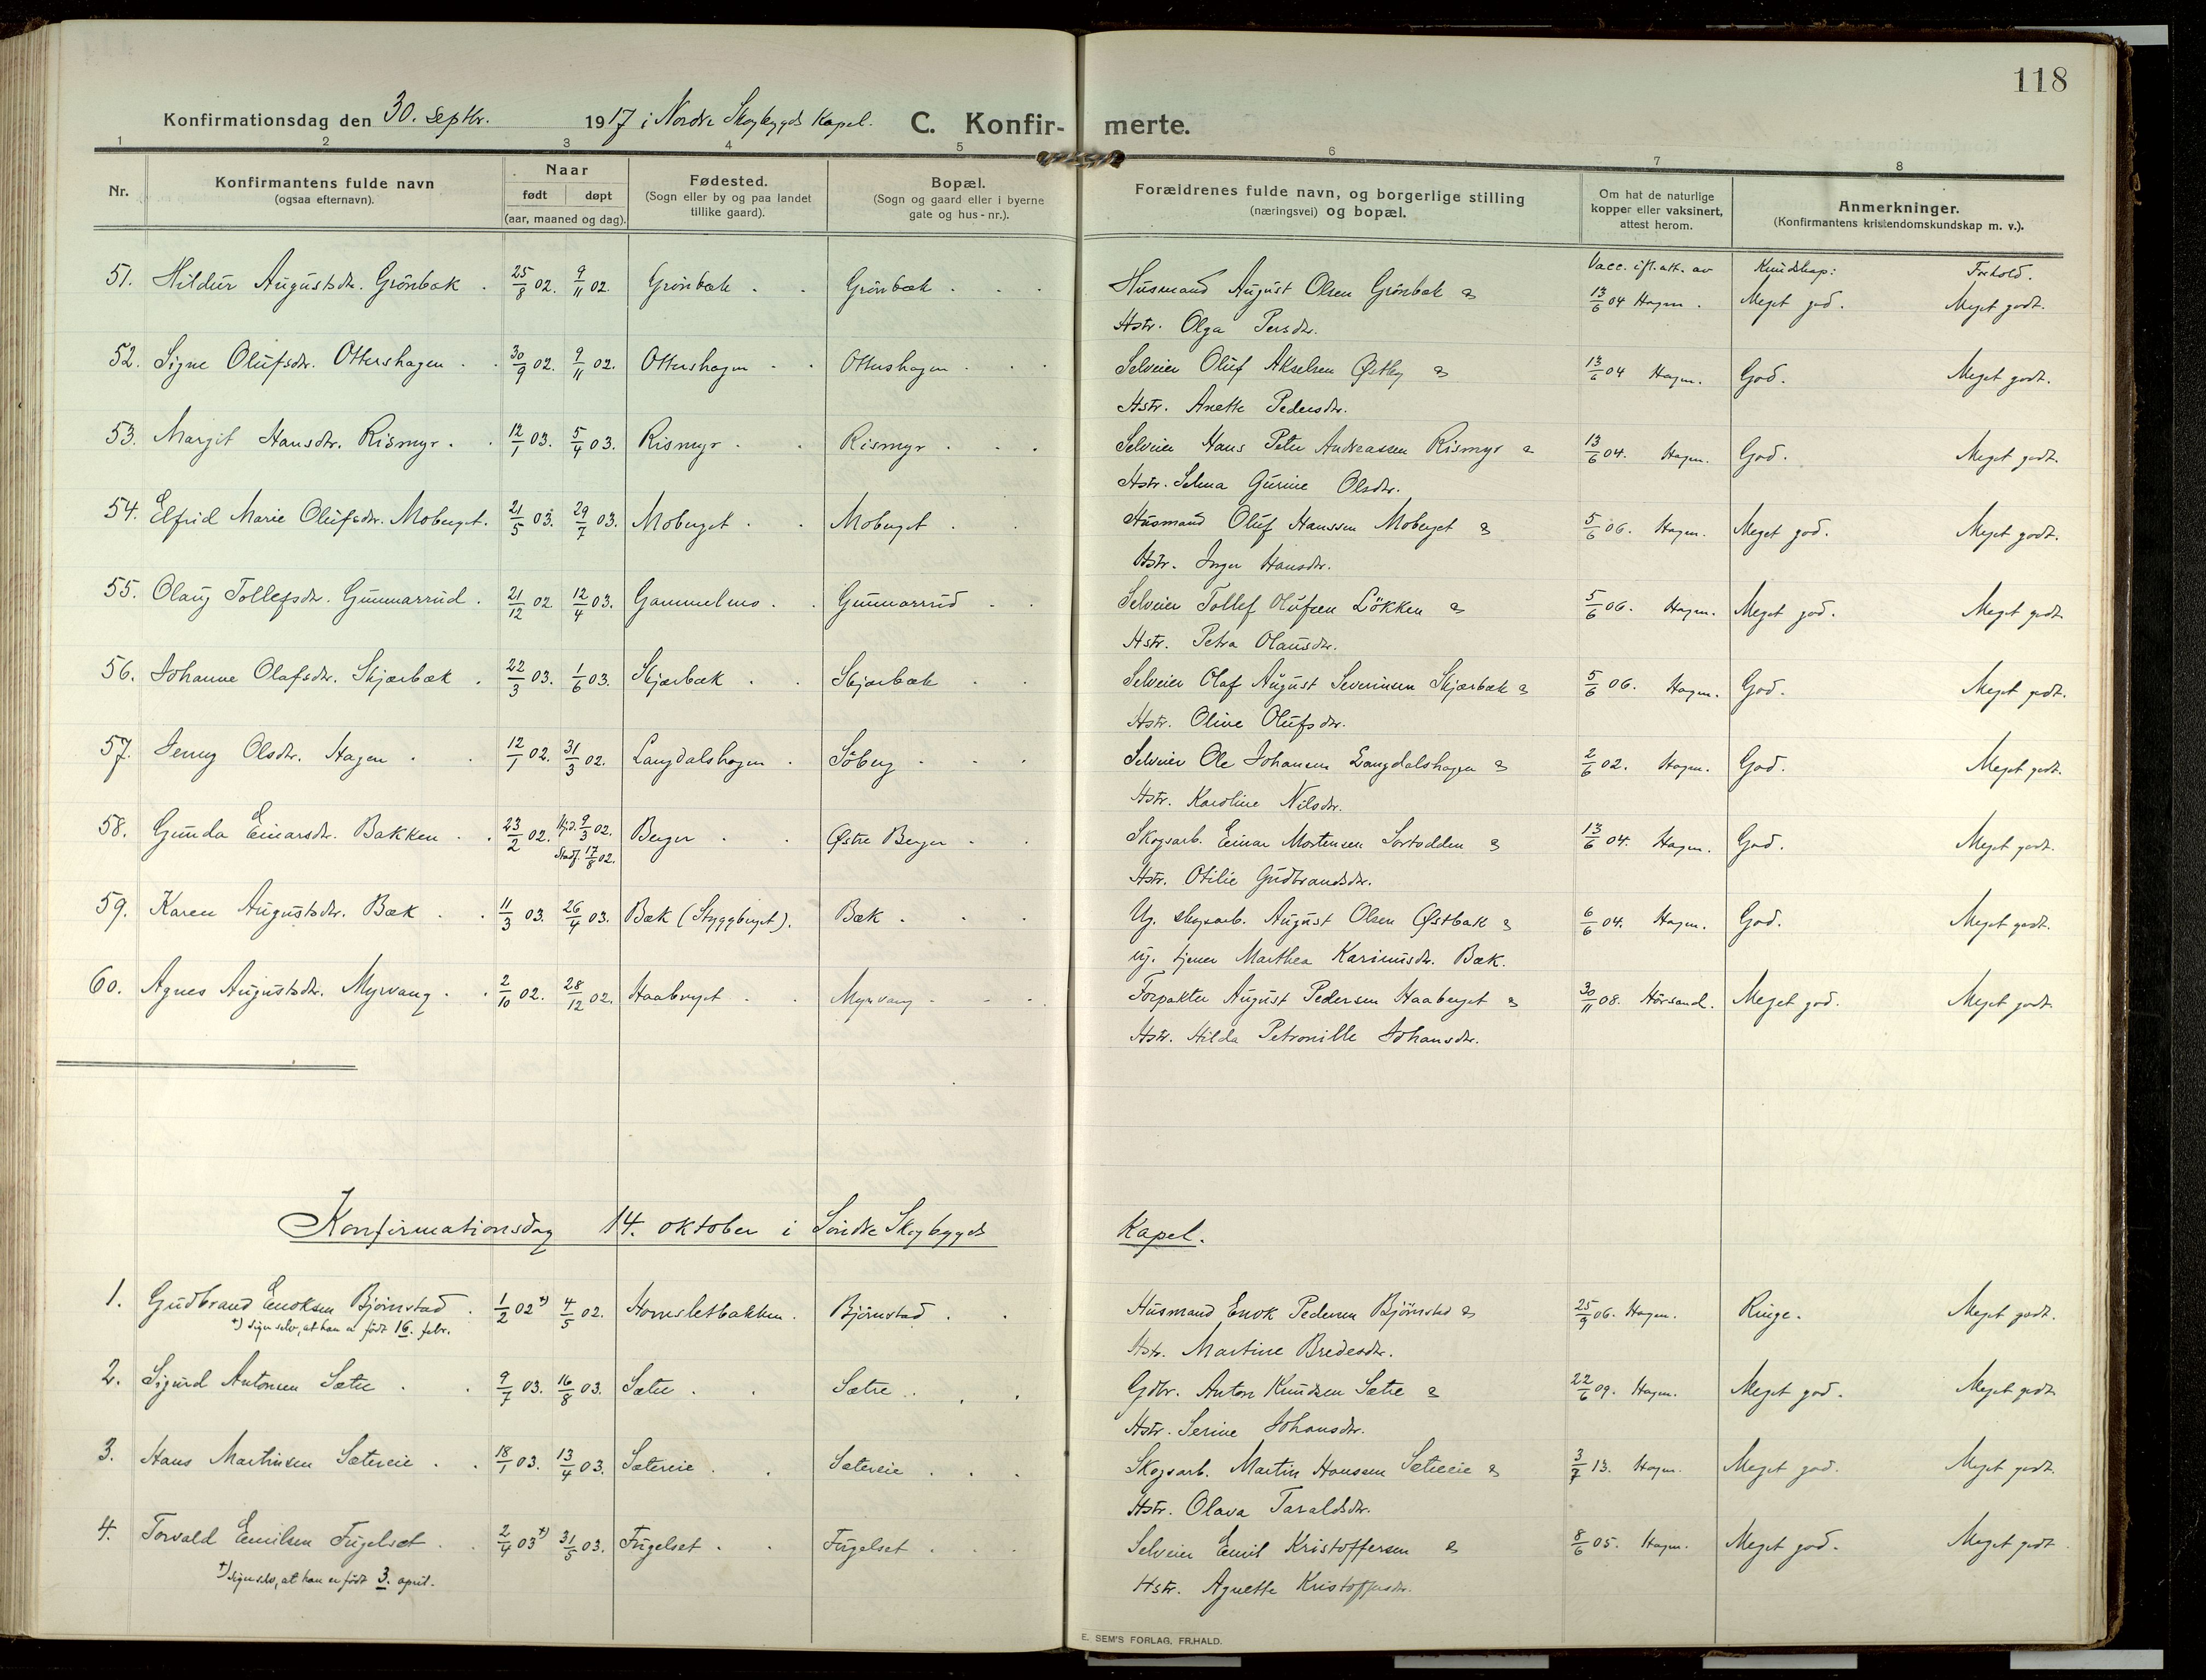 118
Konfirmationsdag den 30. septbr. 1917 i Nordre Skogbygds Kapel. C. Konfir- merte.
1 2 3 4 5 6 7 8
Nr. Konfirmantens fulde navn (ogsaa efternavn). Naar født døpt (aar, maaned og dag). Fødested. (Sogn eller by og paa landet tillike gaard). Bopæl. (Sogn og gaard eller i byerne gate og hus-nr.). Forældrenes fulde navn, og borgerlige stilling (næringsvei) og bopæl. Om hat de naturlige kopper eller vaksinert, attest herom. Anmerkninger. (Konfirmantens kristendomskundskap m. v.).
Vacc. ifl. att. av Kundskap: Forhold.
51. Hildur Augustsdtr. Grönbæk . 25/8 02. 9/11 02. Grönbæk . . Grönbæk . . . Husmand August Olsen Grönbæk & 13/6 04 Hagen . Meget god. Meget godt.
Hstr. Olga Persdtr.
52. Signe Olufsdtr. Ottershagen . . 30/9 02. 9/11 02. Ottershagen . . Ottershagen . . . Selveier Oluf Akselsen Østby & 13/6 04 Hagen. God. Meget godt.
Hstr. Anette Pedersdtr.
53. Margit Hansdtr. Rismyr . . 12/1 03. 5/4 03. Rismyr . . Rismyr . . . Selveier Hans Peter Andreassen Rismyr & 13/6 04. Hagen. God. Meget godt.
Hstr. Selma Gurine Olsdtr.
54. Elfrid Marie Olufsdtr. Moberget. 21/5 03. 29/7 03. Moberget . . Moberget . . Husmand Oluf Hanssen Moberget & 5/6 06. Hagen. Meget god. Meget godt.
Hstr. Inger Hansdtr.
55. Olaug Tollefsdtr. Gunnarrud . 21/12 02 12/4 03. Gammelmo . . Gunnarrud . . Selveier Tollef Olufsen Lökken & 5/6 06. Hagen. Meget god. Meget godt.
Hstr. Petra Olausdtr.
56. Johanne Olafsdtr. Skjærbæk . 22/3 03. 1/6 03. Skjærbæk . . Skjærbæk . . Selveier Olaf August Severinsen Skjærbæk & 5/6 06. Hagen. God. Meget godt.
Hstr. Oline Olufsdtr.
57. Jenny Olsdtr. Hagen . . 12/1 02. 31/3 02. Langdalshagen . Söberg . . . Selveier Ole Johansen Langdalshagen & 2/6 02. Hagen. God. Meget godt.
Hstr. Karoline Nilsdtr.
58. Gunda Einarsdtr. Bakken . . 23/2 02. Hjd. 9/3 02. Berger . . Østre Berger . . Skogsarb. Einar Mortensen Sortodden & 13/6 04. Hagen. God. Meget godt.
Stadf. 17/8 02. Hstr. Otilie Gudbrandsdtr.
59. Karen Augustsdtr. Bæk . . 11/3 03. 26/4 03. Bæk (Styggberget). Bæk . . . Ug. skogsarb. August Olsen Østbæk & 6/6 04. Hagen. God. Meget godt.
ug. tjener Marthea Karinusdtr. Bæk.
60. Agnes Augustsdtr. Myrvang . . 2/10 02. 28/12 02. Haaberget . . Myrvang . . . Forpakter August Pedersen Haaberget & 30/11 08. Hörsand. Meget god. Meget godt.
Hstr. Hilda Petronille Johansdtr.
Konfirmationsdag 14. oktober i Söndre Skogbygds Kapel.
1. Gudbrand Enoksen Bjørnstad . 1/2 02 †) 4/5 02. Hornsletbakken . Bjørnstad . . Husmand Enok Pedersen Bjørnstad & 25/9 06. Hagen. Ringe. Meget godt.
†) siger selv, at han er født 16. febr. Hstr. Martine Bredesdtr.
2. Sigurd Antonsen Sætre . . 9/7 03. 16/8 03. Sætre . . Sætre . . . Gdbr. Anton Knudsen Sætre & 22/6 09. Hagen. Meget god. Meget godt.
Hstr. Serine Johansdtr.
3. Hans Martinsen Sætereie . . 18/1 03. 13/4 03. Sætereie . . Sætereie . . . Skogsarb. Martin Hansen Sætreeie & 3/7 13. Hagen. Meget god. Meget godt.
Hstr. Olava Taraldsdtr.
4. Torvald Emilsen Fugelset . . 2/4 03 †) 31/5 03. Fugelset . . Fugelset . . . Selveier Emil Kristoffersen & 8/6 05. Hagen. Meget god. Meget godt.
†) siger selv, at han er født 3. april. Hstr. Agnette Kristoffersdtr.
E. SEM'S FORLAG, FR.HALD.